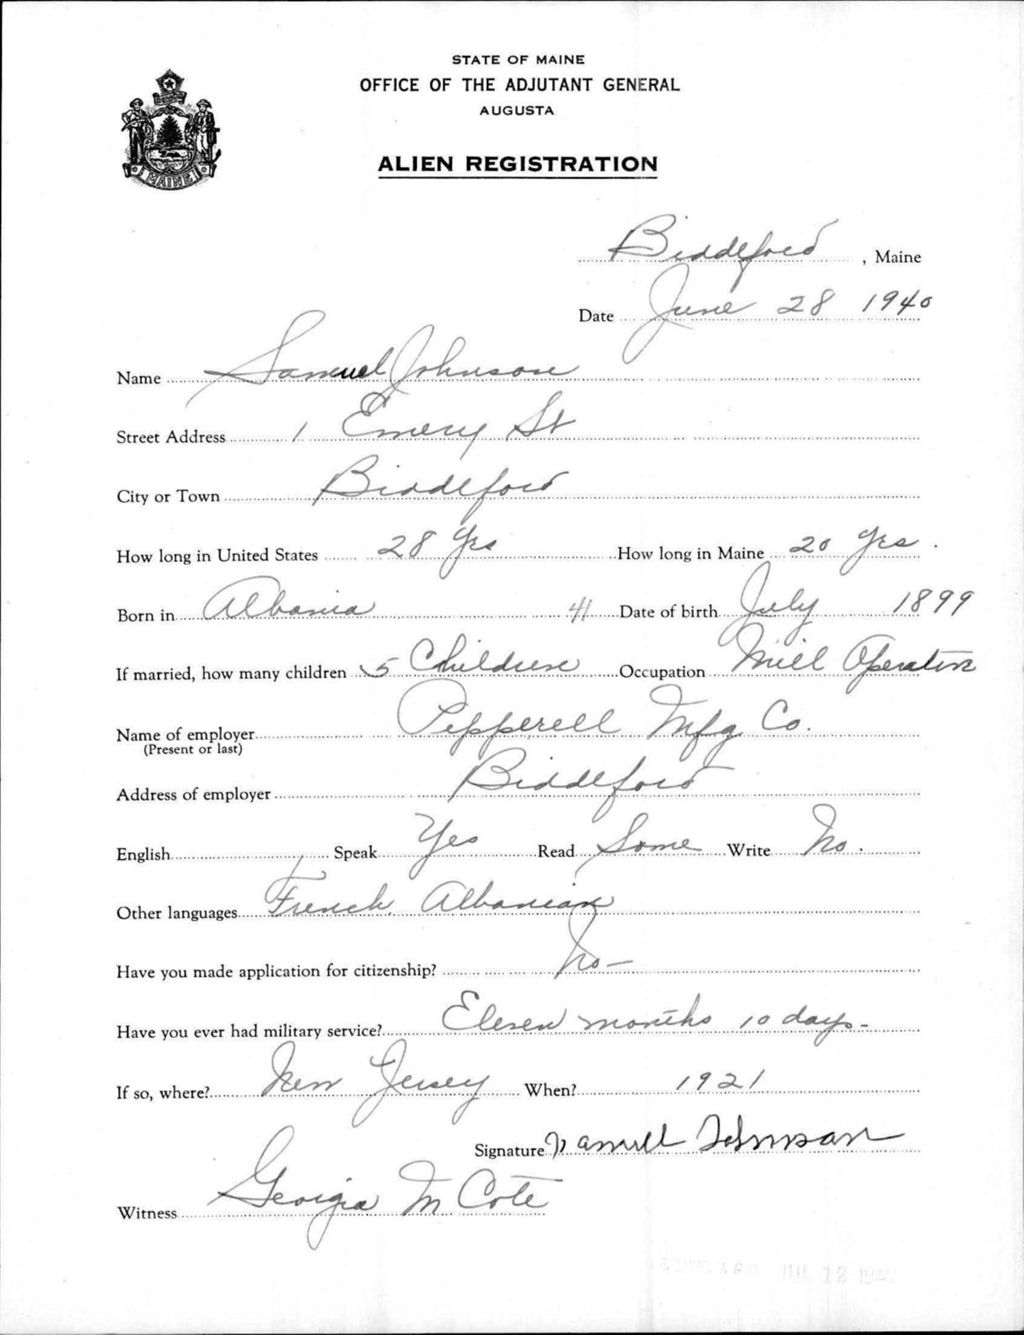 STATE OF MAINE
OFFICE OF THE ADJUTANT GENERAL
AUGUSTA
ALIEN REGISTRATION
MAINE
Biddeford, Maine
Date June 28 1940
Name Samuel Johnson
Street Address 1 Emery St
City or Town Biddeford
How long in United States 28 Yrs How long in Maine 20 Yrs.
Born in Albania 41 Date of birth July 1899
If married, how many children 5 Children Occupation Mill Operative
Name of employer Pepperell Mfg Co.
(Present or last)
Address of employer Biddeford
English Speak Yes Read Some Write No.
Other languages French, Albanian
Have you made application for citizenship? No—
Have you ever had military service? Eleven months 10 days-
If so, where? New Jersey When? 1921
Signature Samuel Johnson
Witness Georgia M Cote
JUL 12 1940